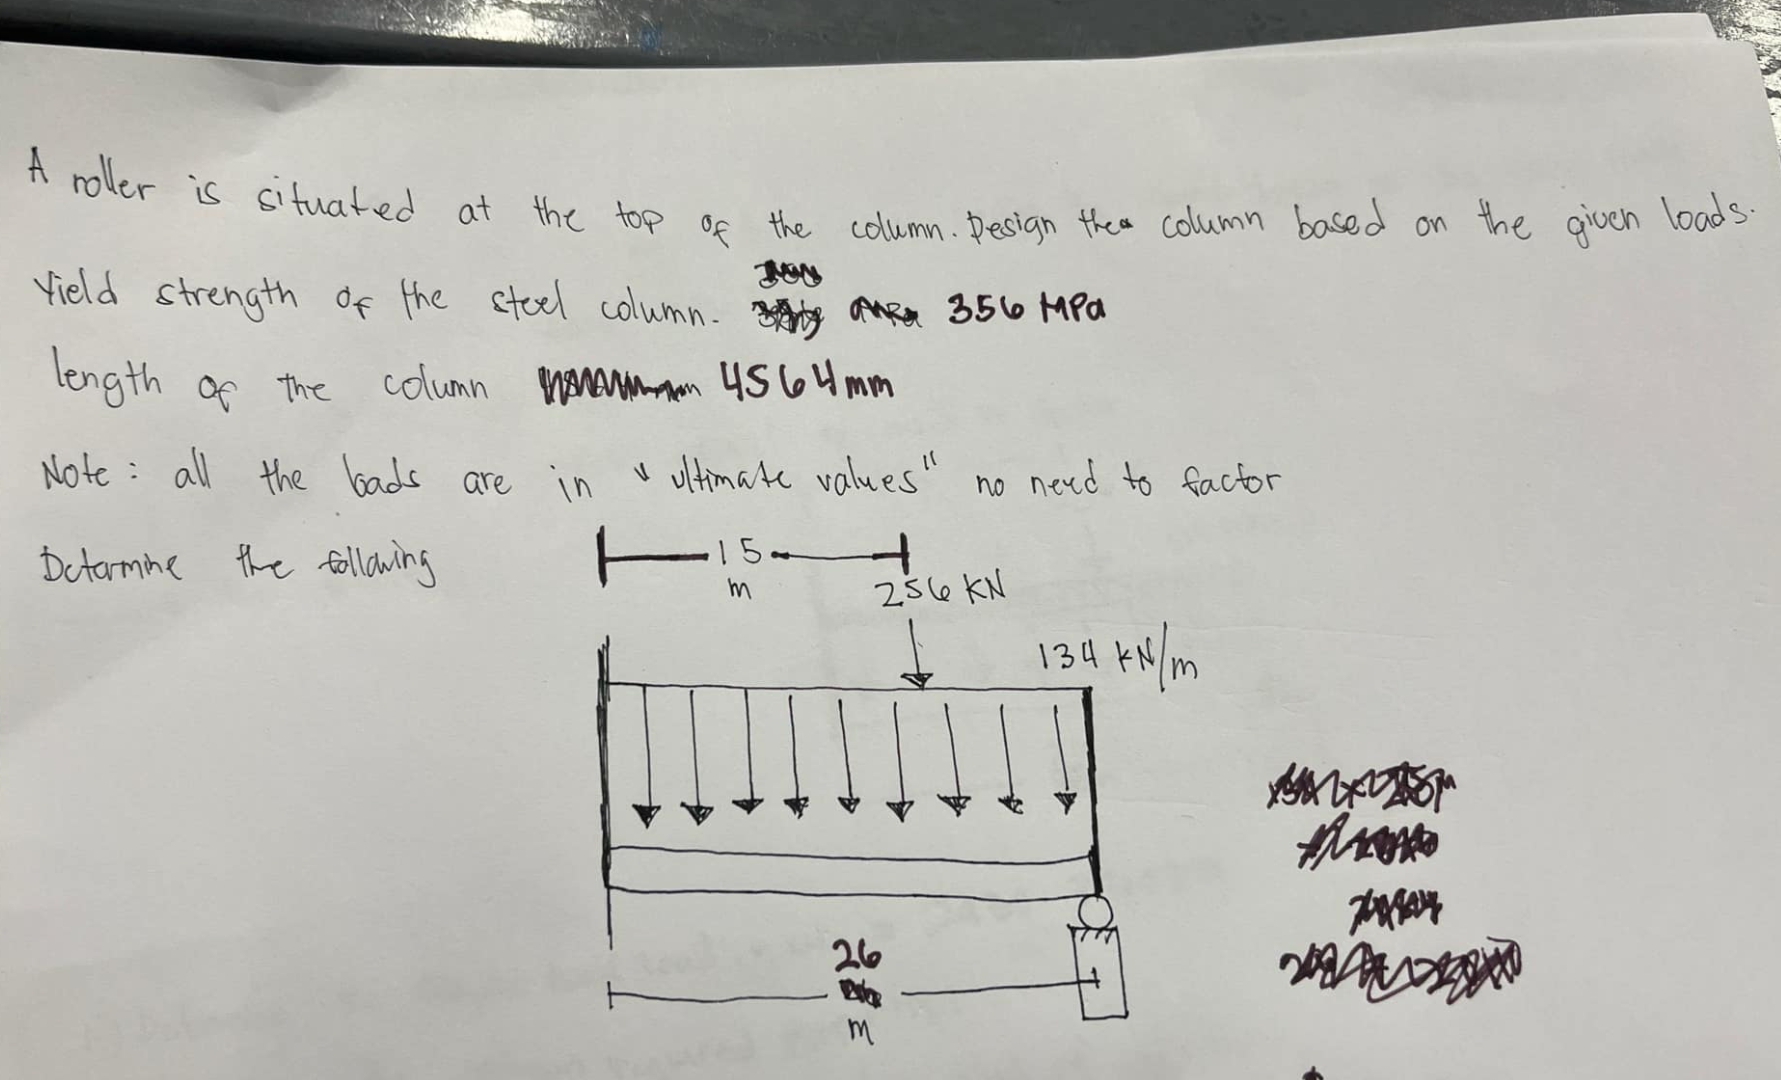 A roller is situated at the top of the column. Design the column based on the given loads.
Yield strength of the steel column. 356 MPa
length of the column 4564mm
Note: all the loads are in "ultimate values" no need to factor
Determine the following
15
m
256 KN
134 kN/m
26
m